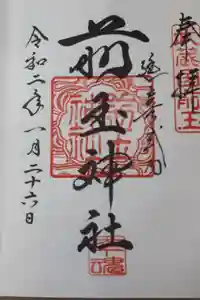 奉拝
延喜式内
前玉神社
令和二年一月二十六日